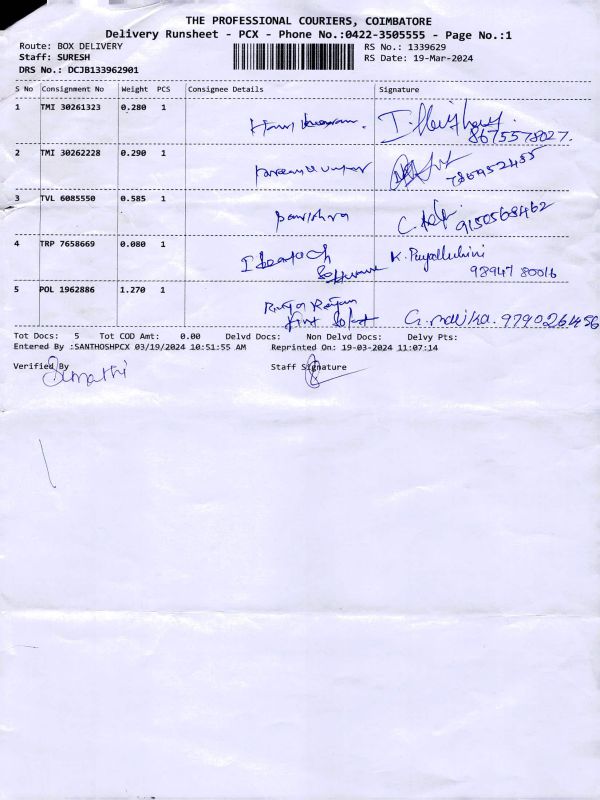 THE PROFESSIONAL COURIERS, COIMBATORE
Delivery Runsheet - PCX - Phone No.:0422-3505555 - Page No.:1
Route: BOX DELIVERY RS No.: 1339629
Staff: SURESH RS Date: 19-Mar-2024
DRS No.: DCJB133962901
S No Consignment No Weight PCS Consignee Details Signature
1 TMI 30261323 0.280 1
8675578027.
2 TMI 30262228 0.290 1
3 TVL 6085550 0.585 1 9150568462
4 TRP 7658669 0.080 1 K.
Software 98947 80016
5 POL 1962886 1.270 1
G. 9790261456
Tot Docs: 5 Tot COD Amt: 0.00 Delvd Docs: Non Delvd Docs: Delvy Pts:
Entered By :SANTHOSHPCX 03/19/2024 10:51:55 AM Reprinted On: 19-03-2024 11:07:14
Verified By Staff Signature
Sumathi